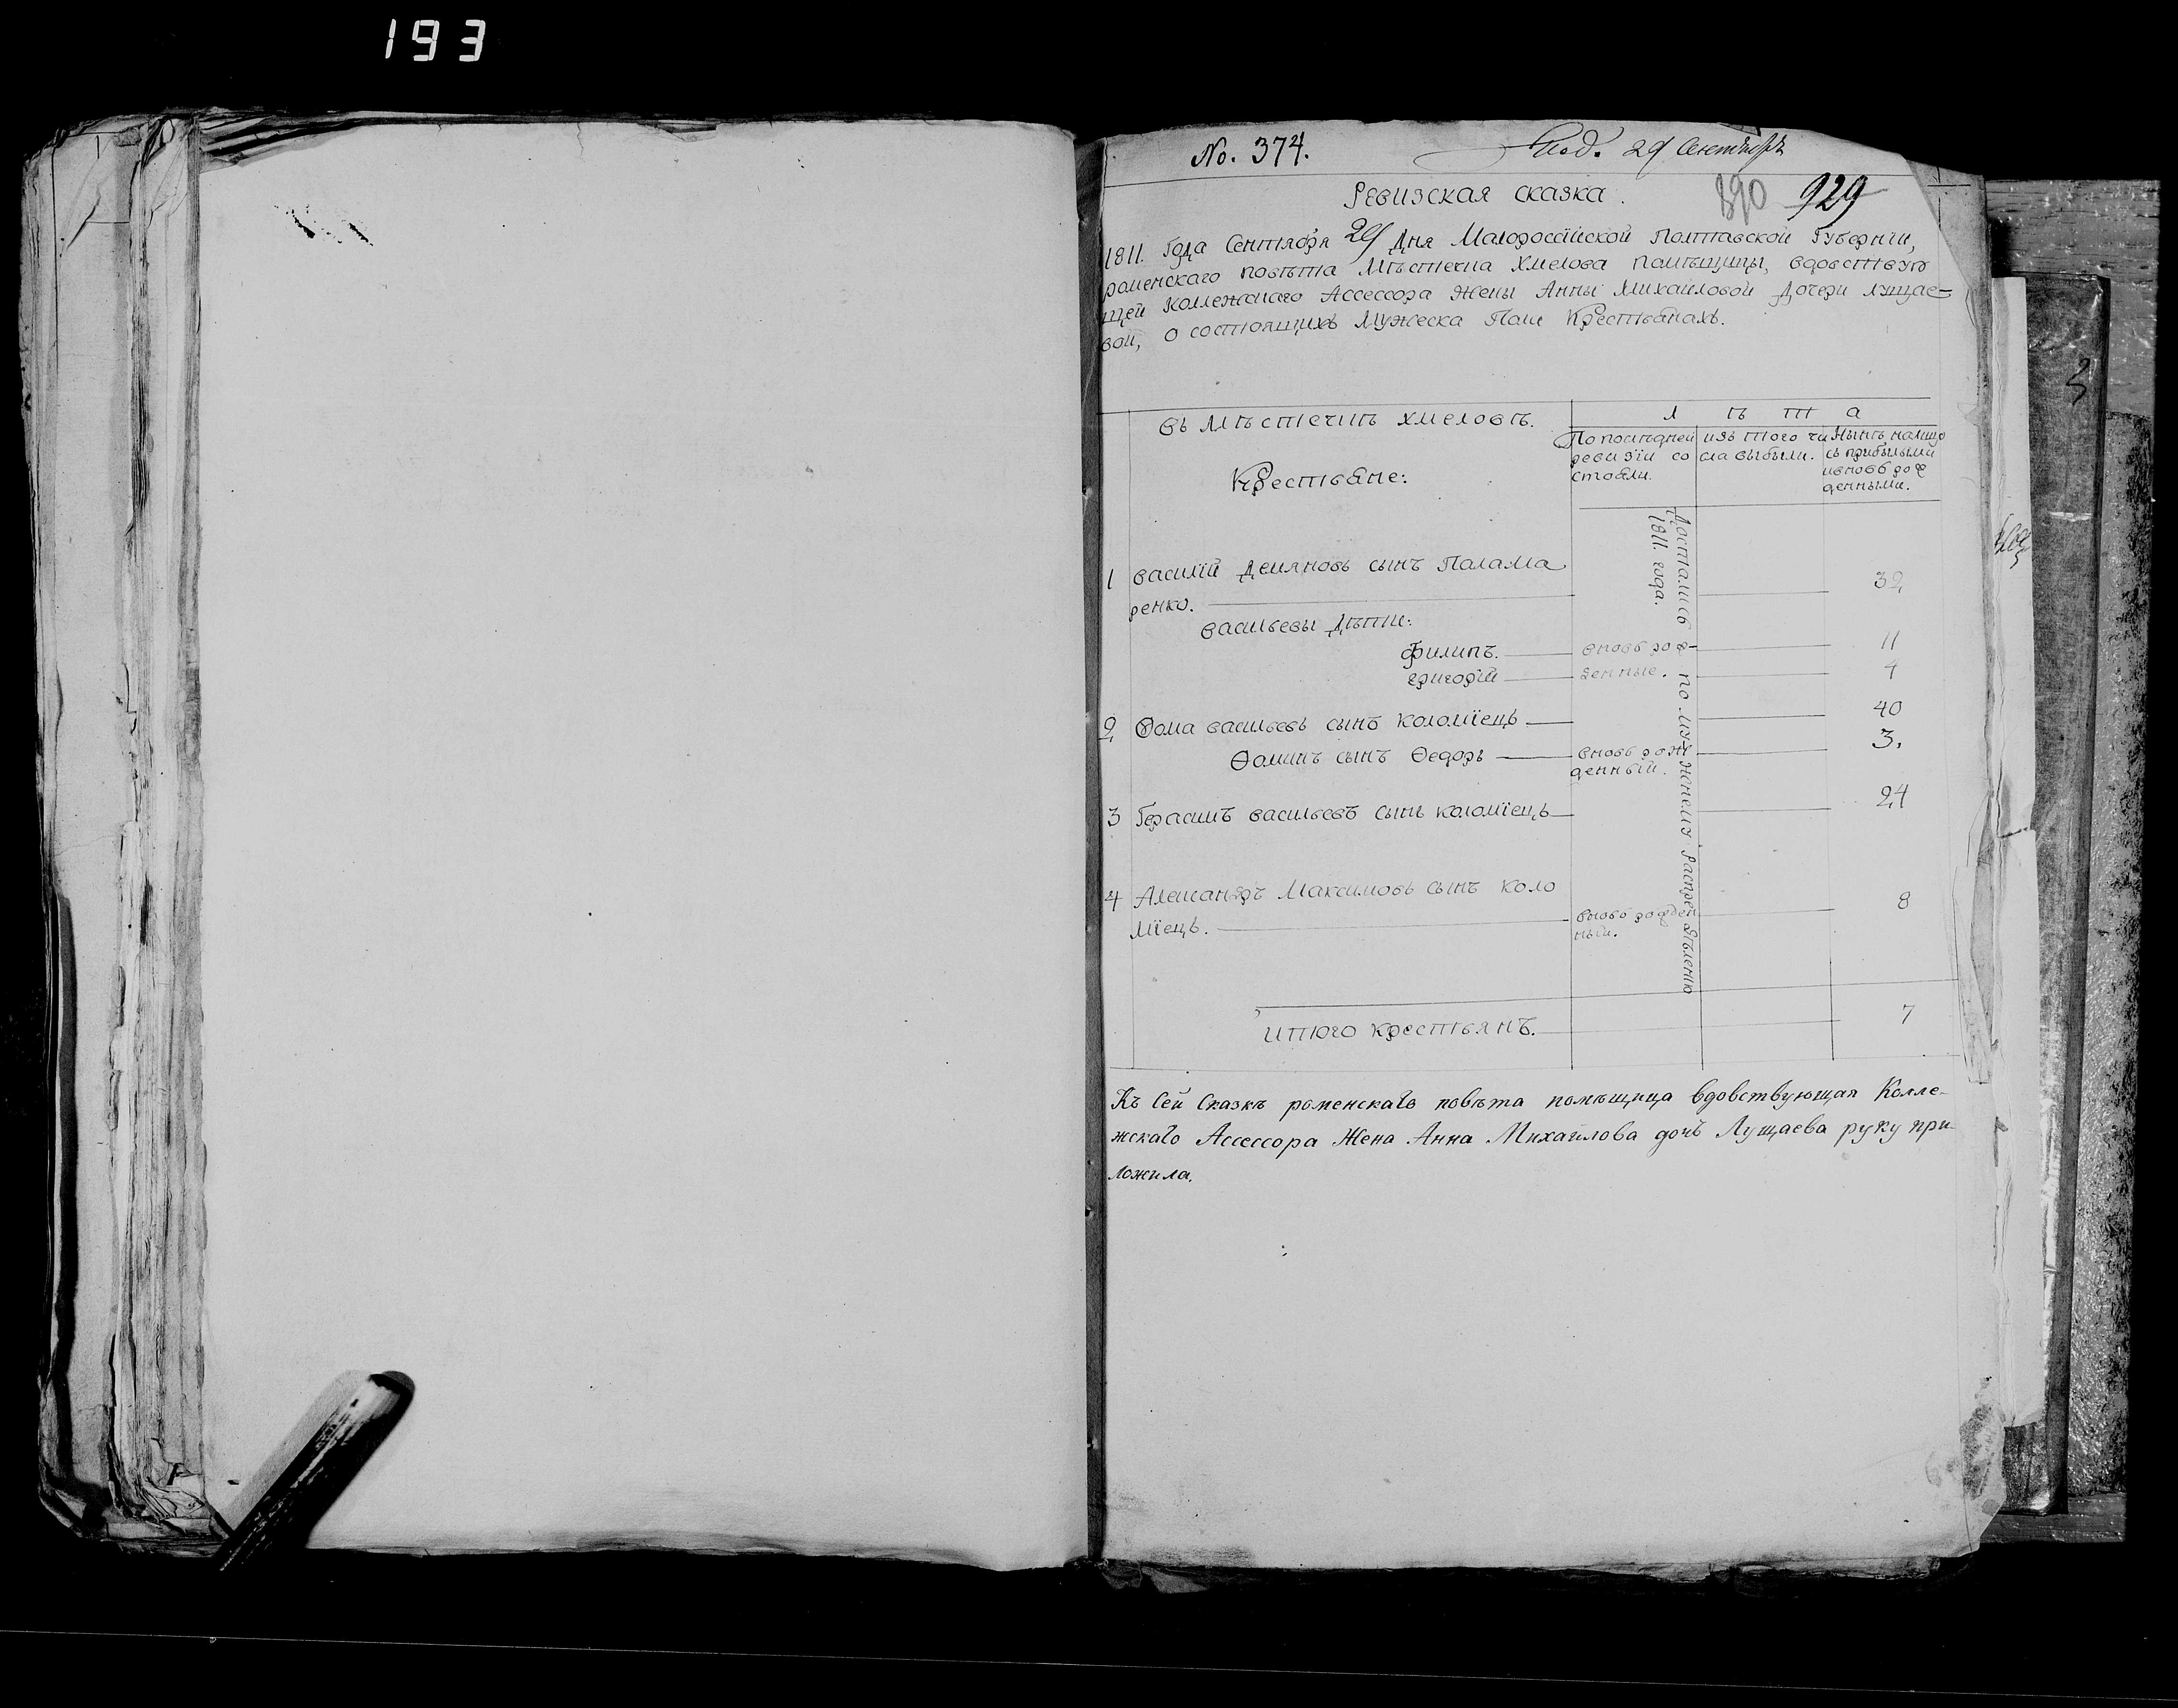 193
No. 374.
Под. 29 Сентября
890 929
Ревизская сказка.
1811. Года Сентября 29 Дня Малороссїйской Полтавской Губернїи,
роменскаго повѣта Мѣстечка Хмелова помѣщицы, вдовствую
щей Коллежскаго Ассессора Жены Анны Михайловой Дочери Лущае-
вой, о состоящихъ Мужеска Пола Крестьянахъ.
въ Мѣстечкѣ Хмеловѣ.
Крестьяне:
Л ѣ т а
По последней
ревизїи со
стояли.
изъ того чи
сла выбыли.
Нынѣ налицо
съ прибылыми
и вновь рож
денными.
Достались по полюбовному распредѣленїю
1811. года.
1 Василїй Демяновъ сынъ Палама
ренко. 32
Васильевы Дѣти:
Филипъ. вновь рож- 11
Григорїй денные. 4
2 Фома Васильевъ сынъ Коломїецъ 40
Ѳоминъ сынъ Ѳедоръ вновь рож 3.
денный.
3 Герасимъ Васильевъ сынъ Коломїецъ 24
4 Алексанъдръ Максимовъ сынъ Коло
мїецъ. вновь рожден 8
ный.
Итого крестьянъ. 7
Къ Сей Сказкѣ роменскаго повѣта помѣщица вдовствующая Колле-
жскаго Ассессора Жена Анна Михайлова дочь Лущаева руку при-
ложила.